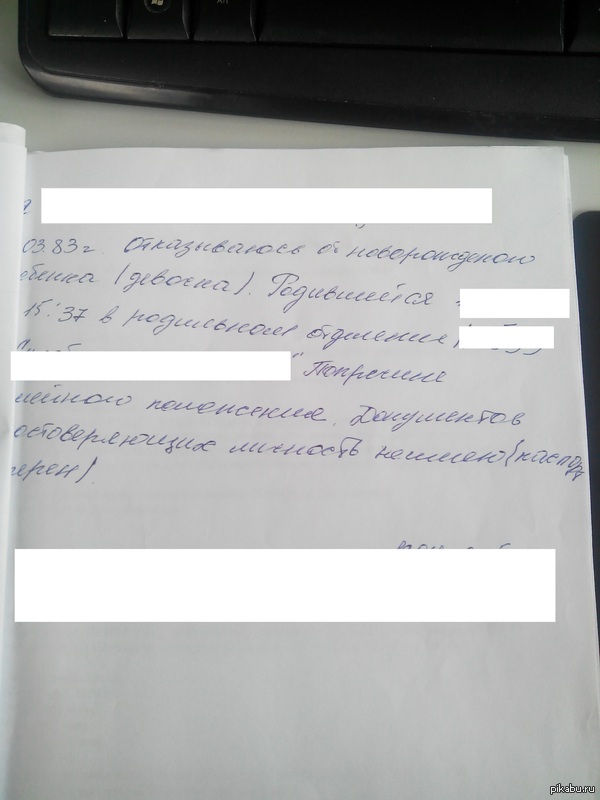 03.83г. отказываюсь от новорожденого
ебенка (девочка). Родившейся
15:37 в родильном отделении
" Попричине
мейного положения. Документов
остоверяющих личность неимею (паспорт
терен).
pikabu.ru